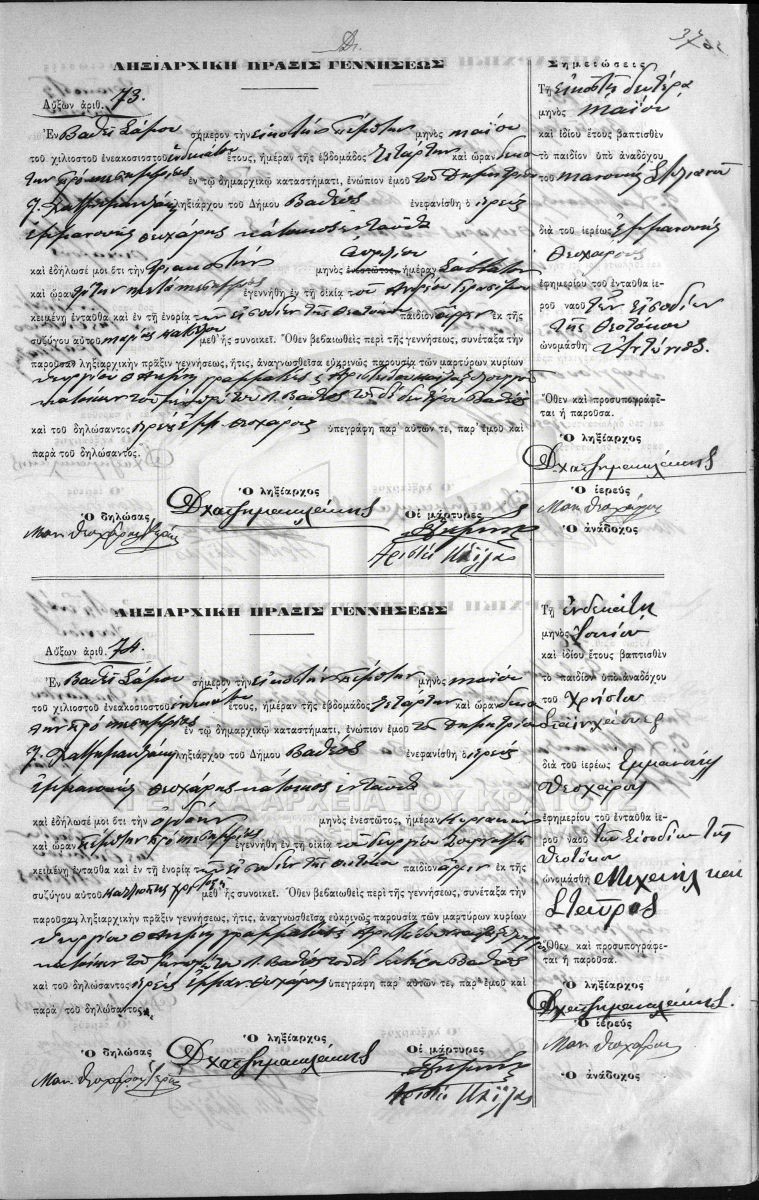 ΛΗΞΙΑΡΧΙΚΗ ΠΡΑΞΙΣ ΓΕΝΝΗΣΕΩΣ
Αὔξων ἀριθ. 73.
Ἐν Βαθεῖ Σάμου σήμερον τὴν εἰκοστὴν πέμπτην μηνὸς μαΐου
τοῦ χιλιοστοῦ ἐνεακοσιοστοῦ ἐνδεκάτου ἔτους, ἡμέραν τῆς ἑβδομάδος Τετάρτην καὶ ὥραν δεκά
την πρὸ μεσημβρίας ἐν τῷ δημαρχικῷ καταστήματι, ἐνώπιον ἐμοῦ τοῦ Δημητρίου
ληξιάρχου τοῦ Δήμου Βαθέος ἐνεφανίσθη ὁ ἱερεὺς
Ἐμμανουὴλ Θεοχάρης κάτοικος ἐνταῦθα
Ἀπριλίου
καὶ ἐδήλωσέ μοι ὅτι τὴν τριακοστὴν μηνὸς ἐνεστῶτος, ἡμέραν Σάββατον
καὶ ὥραν τρίτην μετὰ μεσημβρίας ἐγεννήθη ἐν τῇ οἰκίᾳ τοῦ
κειμένῃ ἐνταῦθα καὶ ἐν τῇ ἐνορίᾳ τῶν εἰσοδίων τῆς Θεοτόκου παιδίον ἄρρεν ἐκ τῆς
συζύγου αὐτοῦ Μαρίας μεθ' ἧς συνοικεῖ. Ὅθεν βεβαιωθεὶς περὶ τῆς γεννήσεως, συνέταξα τὴν
παροῦσαν ληξιαρχικὴν πρᾶξιν γεννήσεως, ἥτις, ἀναγνωσθεῖσα εὐκρινῶς παρουσίᾳ τῶν μαρτύρων κυρίων
Γεωργίου γραμματέως
κατοίκων τοῦ Βαθέος τοῦ δὲ δευτέρου Βαθέος
καὶ τοῦ δηλώσαντος ἱερέως Ἐμμ. Θεοχάρους ὑπεγράφη παρ' αὐτῶν τε, παρ' ἐμοῦ καὶ
παρὰ τοῦ δηλώσαντος.
Ὁ δηλώσας
Μαν. Θεοχάρης ἱερεὺς
Ὁ ληξίαρχος
Δ Χατζημανωλάκης
Οἱ μάρτυρες
Σημειώσεις
Τῇ εἰκοστῇ δευτέρᾳ
μηνὸς Μαΐου
καὶ ἰδίου ἔτους βαπτισθὲν
τὸ παιδίον ὑπὸ ἀναδόχου
τοῦ
διὰ τοῦ ἱερέως Ἐμμανουὴλ
Θεοχάρους
ἐφημερίου τοῦ ἐνταῦθα ἱε-
ροῦ ναοῦ τῶν εἰσοδίων
τῆς Θεοτόκου
ὠνομάσθη Ἀντώνιος.
Ὅθεν καὶ προσυπογράφε-
ται ἡ παροῦσα.
Ὁ ληξίαρχος
Δ Χατζημανωλάκης
Ὁ ἱερεὺς
Μαν. Θεοχάρης
Ὁ ἀνάδοχος
ΛΗΞΙΑΡΧΙΚΗ ΠΡΑΞΙΣ ΓΕΝΝΗΣΕΩΣ
Αὔξων ἀριθ. 74.
Ἐν Βαθεῖ Σάμου σήμερον τὴν εἰκοστὴν πέμπτην μηνὸς μαΐου
τοῦ χιλιοστοῦ ἐνεακοσιοστοῦ ἐνδεκάτου ἔτους, ἡμέραν τῆς ἑβδομάδος Τετάρτην καὶ ὥραν δεκά
την πρὸ μεσημβρίας ἐν τῷ δημαρχικῷ καταστήματι, ἐνώπιον ἐμοῦ τοῦ Δημητρίου
ληξιάρχου τοῦ Δήμου Βαθέος ἐνεφανίσθη ὁ ἱερεὺς
Ἐμμανουὴλ Θεοχάρης κάτοικος ἐνταῦθα
καὶ ἐδήλωσέ μοι ὅτι τὴν ὀγδόην μηνὸς ἐνεστῶτος, ἡμέραν Κυριακὴν
καὶ ὥραν πέμπτην πρὸ μεσημβρίας ἐγεννήθη ἐν τῇ οἰκίᾳ τοῦ Γεωργίου
κειμένῃ ἐνταῦθα καὶ ἐν τῇ ἐνορίᾳ τῶν εἰσοδίων τῆς Θεοτόκου παιδίον ἄρρεν ἐκ τῆς
συζύγου αὐτοῦ Καλλιόπης μεθ' ἧς συνοικεῖ. Ὅθεν βεβαιωθεὶς περὶ τῆς γεννήσεως, συνέταξα τὴν
παροῦσαν ληξιαρχικὴν πρᾶξιν γεννήσεως, ἥτις, ἀναγνωσθεῖσα εὐκρινῶς παρουσίᾳ τῶν μαρτύρων κυρίων
Γεωργίου γραμματέως
κατοίκων τοῦ Βαθέος τοῦ δὲ Βαθέος
καὶ τοῦ δηλώσαντος ἱερέως Ἐμμαν. Θεοχάρους ὑπεγράφη παρ' αὐτῶν τε, παρ' ἐμοῦ καὶ
παρὰ τοῦ δηλώσαντος.
Ὁ δηλώσας
Μαν. Θεοχάρης ἱερεὺς
Ὁ ληξίαρχος
Δ Χατζημανωλάκης
Οἱ μάρτυρες
Τῇ ἑνδεκάτῃ
μηνὸς Ἰουνίου
καὶ ἰδίου ἔτους βαπτισθὲν
τὸ παιδίον ὑπὸ ἀναδόχου
τοῦ Χρήστου
διὰ τοῦ ἱερέως Ἐμμανουὴλ
Θεοχάρους
ἐφημερίου τοῦ ἐνταῦθα ἱε-
ροῦ ναοῦ τῶν Εἰσοδίων τῆς
Θεοτόκου
ὠνομάσθη Μιχαὴλ καὶ
Σταῦρος
Ὅθεν καὶ προσυπογράφε-
ται ἡ παροῦσα.
Ὁ ληξίαρχος
Δ Χατζημανωλάκης.
Ὁ ἱερεὺς
Μαν. Θεοχάρης
Ὁ ἀνάδοχος
ΓΕΝΙΚΑ ΑΡΧΕΙΑ ΤΟΥ ΚΡΑΤΟΥΣ